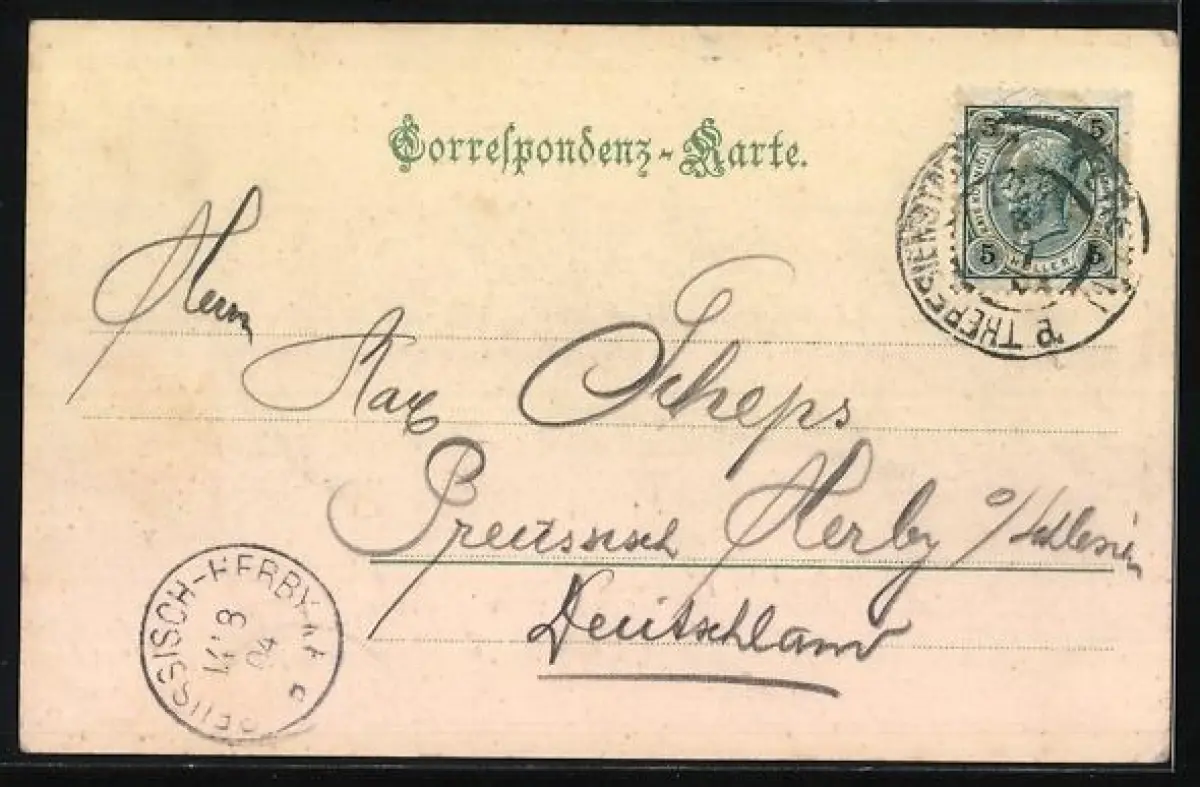 Correſpondenz-Karte.
5 5
5 HELLER 5
THERESIENSTADT
Herrn
Max Scheps
Preussisch Herby o/Schlesien
Deutschland
PREUSSISCH-HERBY
8
04